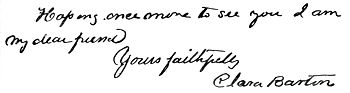 Hoping once more to see you I am
my dear friend
Yours faithfully
Clara Barton